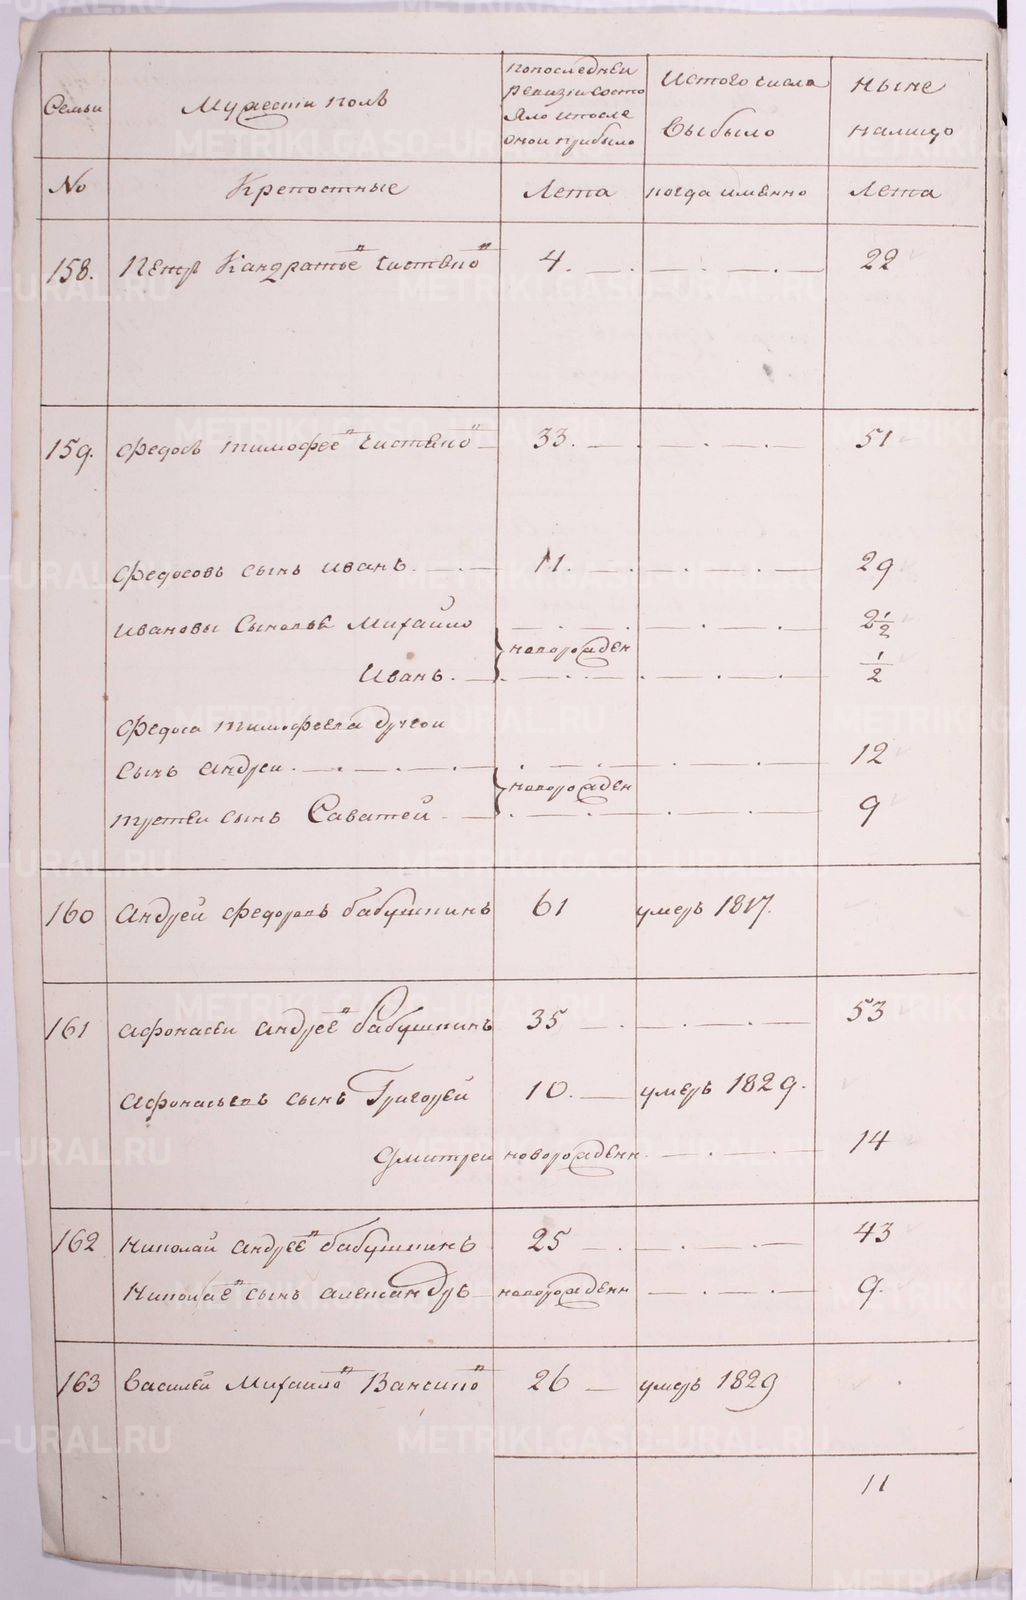 Семьи
Мужеска полъ
попоследней
ревизiи состо
яло ипосле
оной прибыло
Истого числа
выбыло
ныне
налицо
No
Крепостные
Лета
когда имянно
Лета
158. Петръ Кандратье" 4. 22
159. Федосъ тимофее" 33. 51
Федосовъ сынъ иванъ. 11. 29
ивановы Сыновья Михайло 2 1/2
новорожден
Иванъ. 1/2
Федоса тимофеева другой
Сынъ андреи. 12
новорожден
третеи сынъ Саватей 9
160 Андрей Федоровъ бабушкинъ 61 умеръ 1817.
161 афонасеи андрее" бабушкинъ 35 53
афонасьевъ сынъ Григорей 10. умеръ 1829.
Дмитреи новорожденн 14
162 николай андрее" бабушкинъ 25 43
николае" сынъ александръ новорожденн 9.
163 Василей Михаило" 26 умеръ 1829
11
METRIKI.GASO-URAL.RU